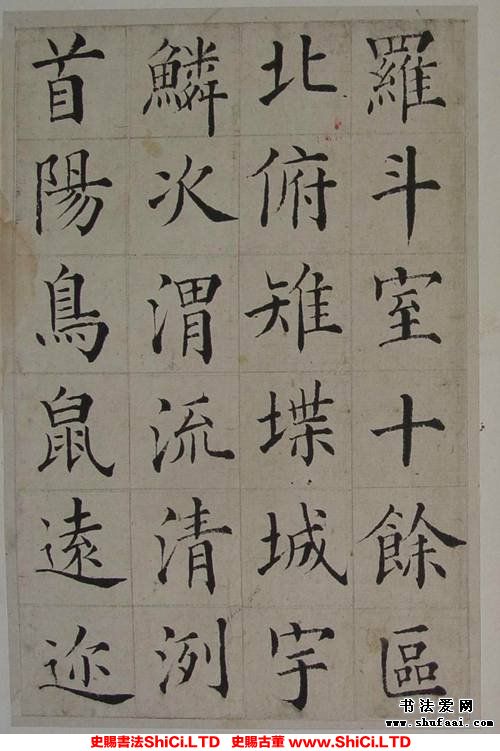 羅斗室十餘區
北俯雉堞城宇
鱗次渭流清洌
首陽鳥鼠遠迩
书法爱网
www.shufaai.com
史賜書法ShiCi.LTD 史賜古董 www.ShiCi.LTD